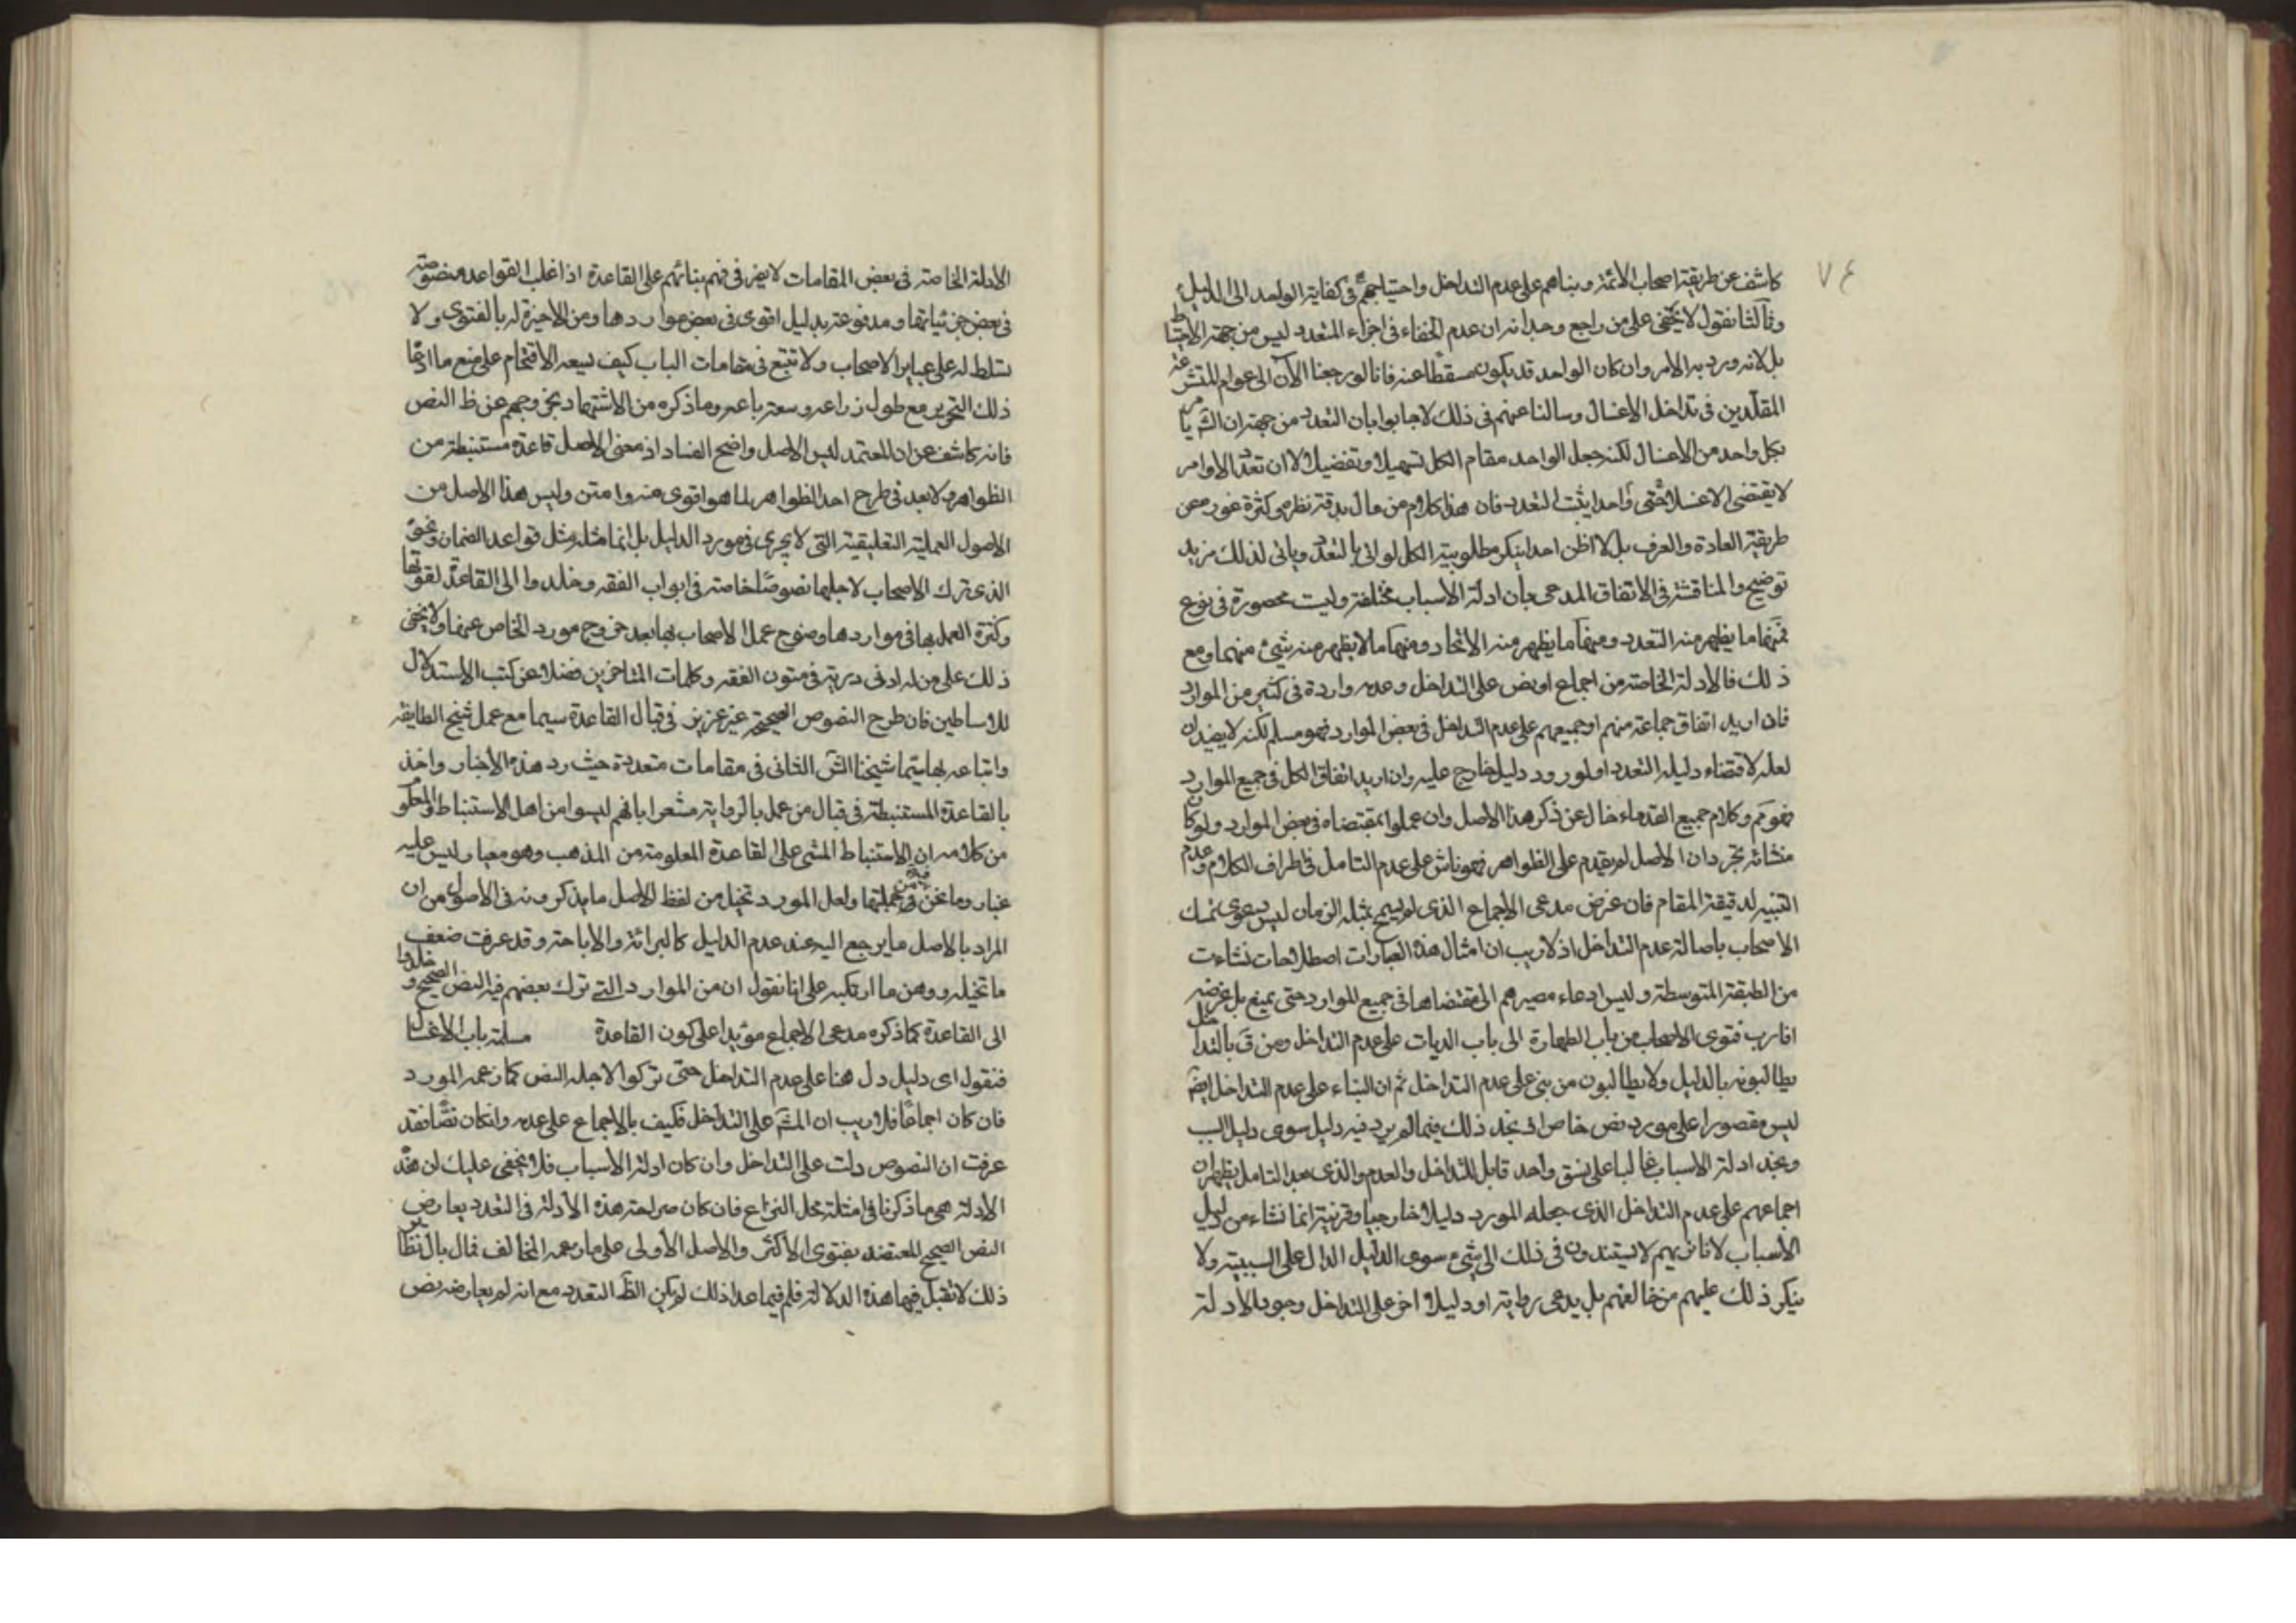 ٧٤
كاشف عن طريقة اصحاب الائمة وبناهم على عدم التداخل واحتياجهم فى كفاية الواحد الى الدليل
وثالثا نقول لا يخفى على من راجع وجدانه ان عدم الخفاء فى اجزاء المتعدد ليس من جهة الاحتياط
بل لانه ورد به الامر وان كان الواحد قد يكون مسقطا عنه فانا لو رجعنا الآن الى عوام المتشرعة
المقلدين فى تداخل الاغسال وسالنا عنهم فى ذلك لاجابوا بان التعدد من جهة ان الشَ
بكل واحد من الاغسال لكنه جعل الواحد مقام الكل تسهيلا وتفضيلا لا ان تعدد الاوامر
لا يقتضى الا غسلا حتى واحدا يثبت التعدد فان هذا كلام من مال بدقة نظره عن كثرة غور عن
طريقة العادة والعرف بل لا اظن احدا ينكر مطلوبية الكل لو اتى بالتعدد وياتى لذلك مزيد
توضيح والمناقشة فى الاتفاق المدعى بأن ادلة الاسباب مختلفة وليست محصورة فى نوع
فمنها ما يظهر منه التعدد ومنها ما يظهر منه الاتحاد ومنها ما لا يظهر منه شيئ منهما ومع
ذلك فالادلة الخاصة من اجماع او نص على التداخل وعدمه واردة فى كثير من الموارد
فان اريد اتفاق جماعة منهم او جميعهم على عدم التداخل فى بعض الموارد فهو مسلم لكنه لا يفيد لان
لعله لاقتضاء دليله التعدد او لورود دليل خارج عليه وان اريد اتفاق الكل فى جميع الموارد
فهو مَم وكلام جميع القدماء خال عن ذكر هذا الاصل وان عملوا بمقتضاه فى بعض الموارد ولو كان
منشائه تجرد ان الاصل لم يقدم على الظواهر فهو ناش على عدم التامل فى اطراف الكلام وعدم
التنبيه لدقيقة المقام فان غرض مدعى الاجماع الذى لم يسمح بمثله الزمان ليس دعوى تمسك
الاصحاب باصالة عدم التداخل اذ لا ريب ان امثال هذه العبارات اصطلاحات نشاءت
من الطبقة المتوسطة وليس ادعاء مصيرهم الى مقتضاها فى جميع الموارد حتى يمنع بل غرضه
انا رب فتوى الاصحاب من باب الطهارة الى باب الديات على عدم التداخل ومن قَ بالتداخل
يطالبونه بالدليل ولا يطالبون من بنى على عدم التداخل ثم ان البناء على عدم التداخل ايضَ
ليس مقصورا على مورد نص خاص اذ نجد ذلك فيما لم يرد فيه دليل سوى دليل السبب
ونجد ادلة الاسباب غالبا على نسق واحد قابل للتداخل والعدم والذى بعد التامل يظهر ان
اجماعهم على عدم التداخل الذى جعله المورد دليلا خارجيا وقرينة انما نشاء من دليل
الاسباب لانا نريهم لا يستندون فى ذلك الى شيئ سوى الدليل الدال على السببية ولا
ينكر ذلك عليهم من خالفهم بل يدعى رواية او دليلا اخر على التداخل وجود الادلة
الادلة الخاصة فى بعض المقامات لا يضر فى فهم بنائهم على القاعدة اذ اغلب القواعد منصوصة
فى بعض جزئياتها ومدفوعة بدليل اقوى فى بعض مواردها ومن لا خبرة له بالفتوى ولا
تسلط له على عباير الاصحاب ولا تتبع فى مقامات الباب كيف يسعه الاقتحام على منع ما ادعاه
ذلك التحرير مع طول ذراعه وسعة باعه وما ذكره من الاشتهاد بخروجهم عن ظ النص
فانه كاشف عن ان المعتمد ليس الاصل واضح الفساد اذ معنى الاصل قاعدة مستنبطة من
الظواهر ولا بعد فى طرح احد الظواهر لما هو اقوى منه وامتن وليس هذا الاصل من
الاصول العملية التعليقية التى لا يجرى فى مورد الدليل بل انما مثله مثل قواعد الضمان ونحوه
الذى ترك الاصحاب لاجلها نصوصا خاصة فى ابواب الفقه وخلدوا الى القاعدة لقوتها
وكثرة العمل بها فى مواردها وضوح عمل الاصحاب بها بعد خروج مورد الخاص عنها ولا يخفى
ذلك على من له ادنى دربة فى متون الفقه وكلمات المتاخرين فضلا عن كتب الاستدلال
للاساطين فان طرح النصوص الصحيحة غير عزيز فى قبال القاعدة سيما مع عمل شيخ الطايفة
واتباعه بها سيما شيخنا الش الثانى فى مقامات متعددة حيث رد هذه الاخبار واخذ
بالقاعدة المستنبطة فى قبال من عمل بالرواية مشعرا بانهم ليسوا من اهل الاستنباط والمعلوم
من كلامه ان الاستنباط المشى على القاعدة المعلومة من المذهب وهو معيار ليس عليه
غبار وما نحن فيه من جملتها ولعل المورد تخيل من لفظ الاصل ما يذكرونه فى الاصول من ان
المراد بالاصل ما يرجع اليه عند عدم الدليل كالبرائة والاباحة وقد عرفت ضعف
ما تخيله ووهن ما ارتكبه على انا نقول ان من الموارد التى ترك بعضهم فيه النص الصحيح وخلدوا
الى القاعدة كما ذكره مدعى الاجماع مؤيدا على كون القاعدة مسلمة باب الاغسال
فنقول اى دليل دل هنا على عدم التداخل حتى تركوا لاجله النص كما زعمه المورد
فان كان اجماعا فلا ريب ان المشَ على التداخل فكيف بالاجماع على عدمه وانكان نصا فقد
عرفت ان النصوص دلت على التداخل وان كان ادلة الاسباب فلا يخفى عليك ان هذه
الادلة هى ما ذكرنا فى امثلة محل النزاع فان كان صراحة هذه الادلة فى التعدد يعارض
النص الصحيح المعتضد بفتوى الاكثر والاصل الاولى على ما زعمه المخالف فما بال نظاير
ذلك لا تقبل فيها هذه الدلالة فلم فيما عدا ذلك لم يكن الظَ التعدد مع انه لم يعارضه نص